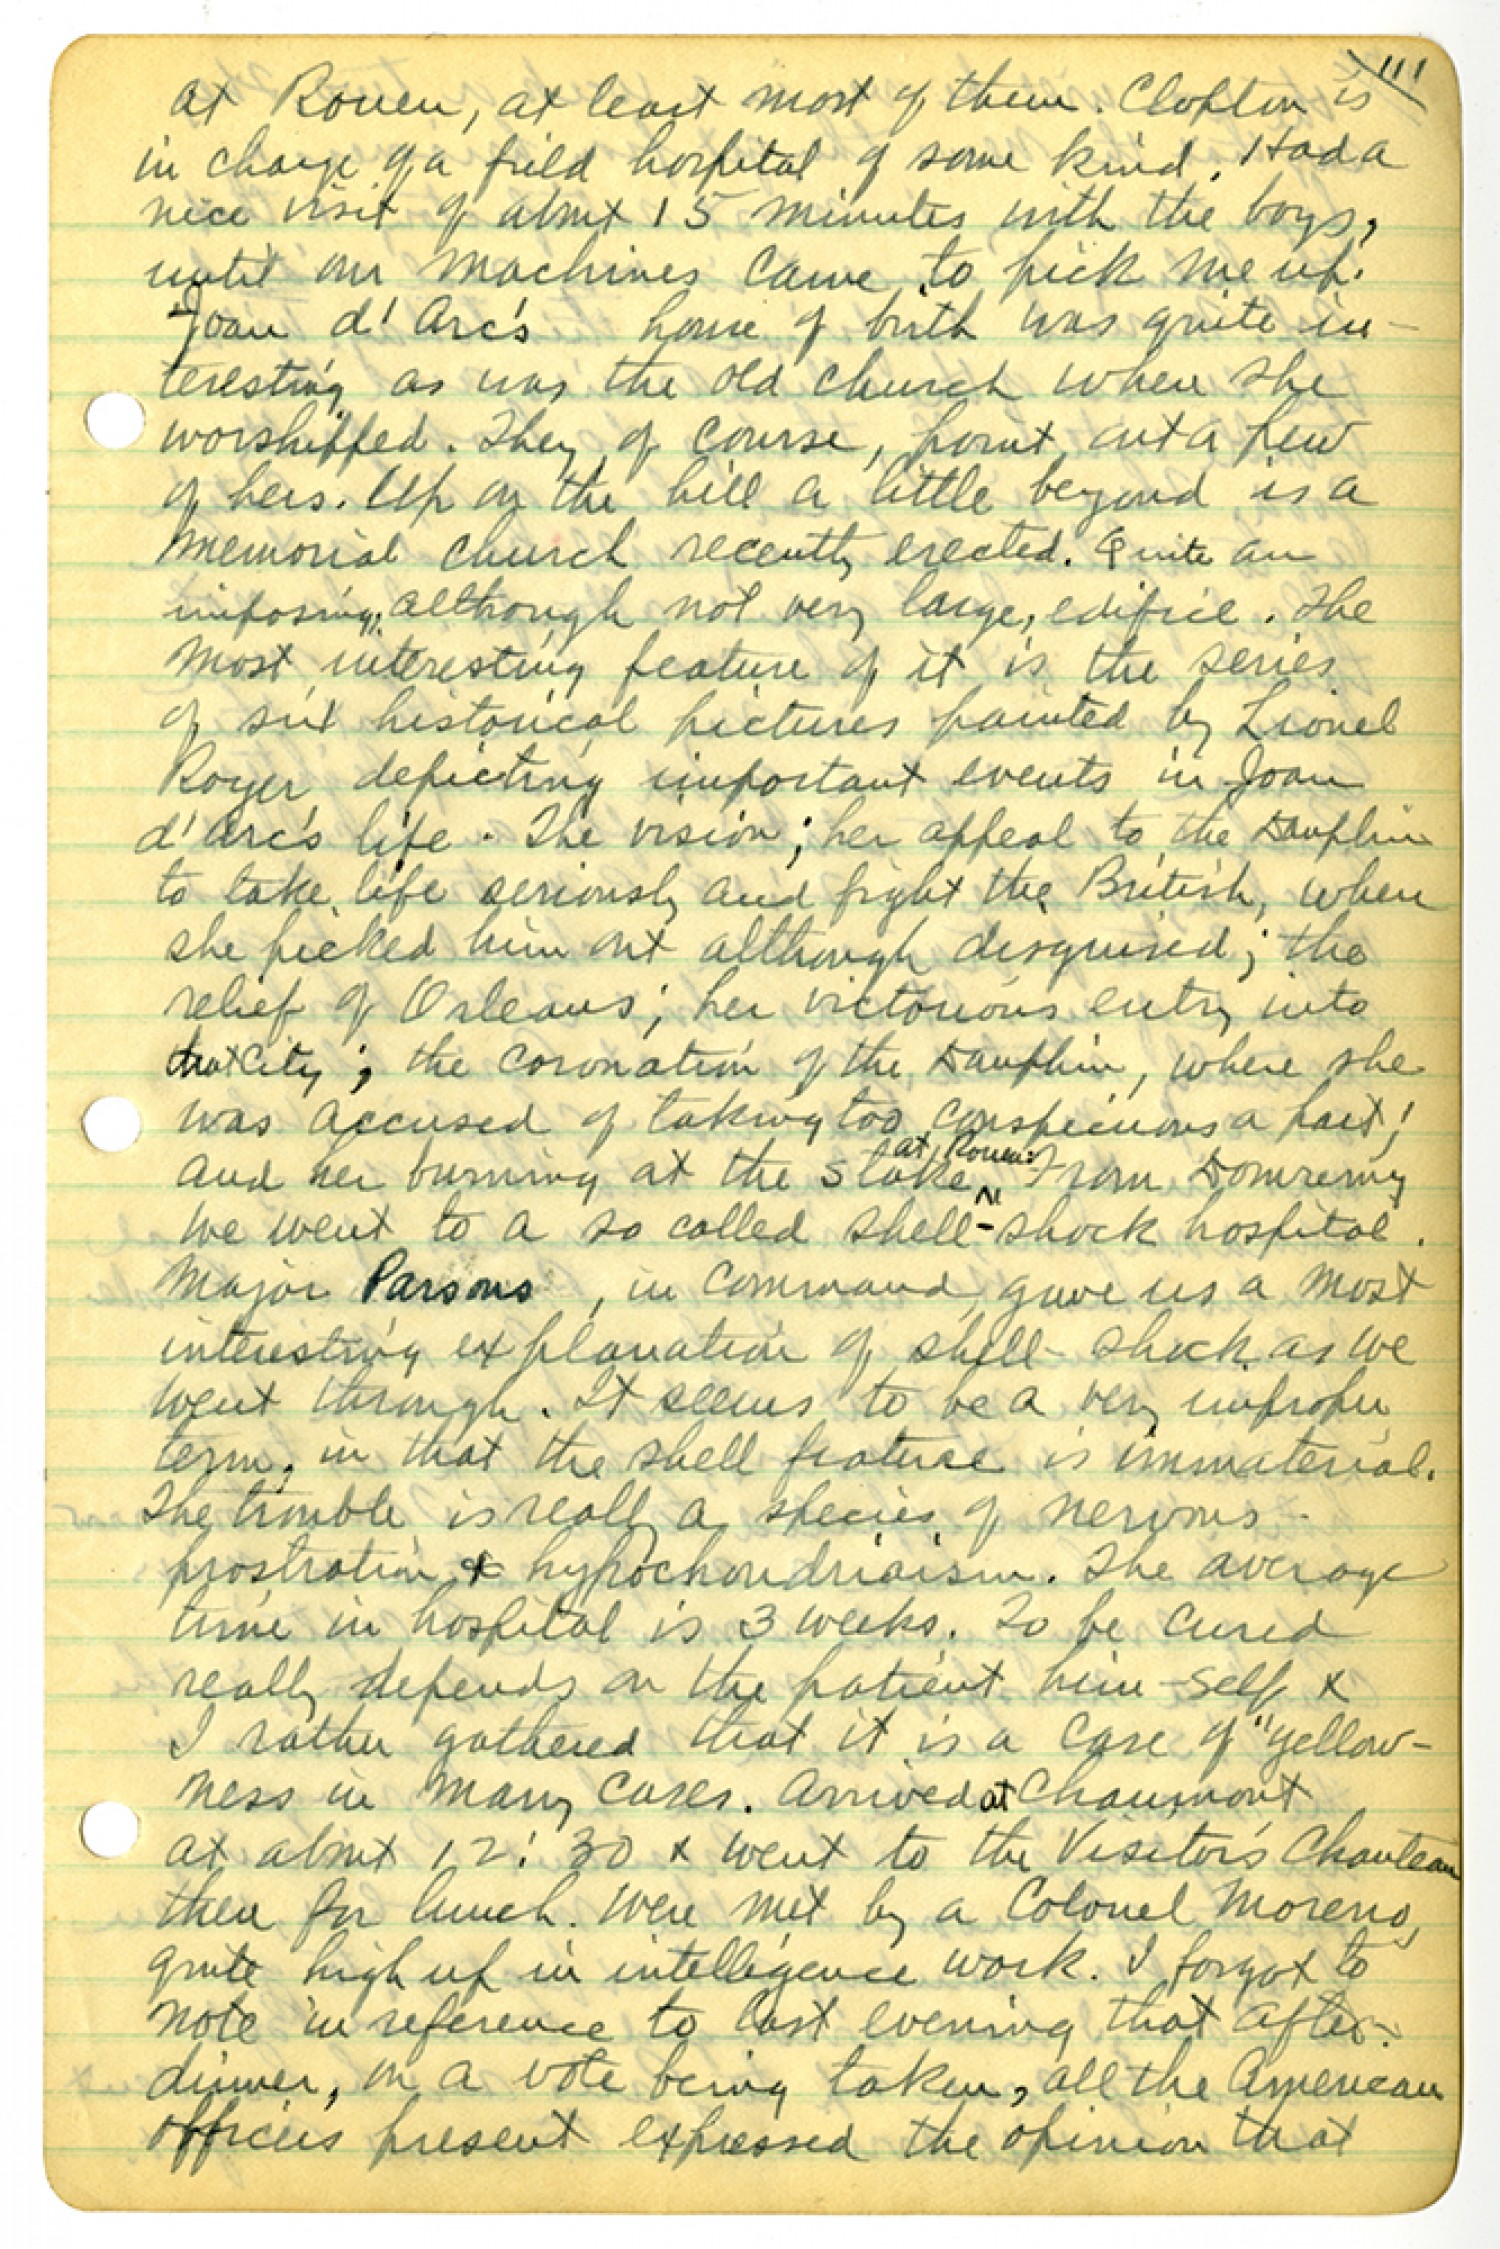 111
at Rouen, at least most of them. Clopton is
in charge of a field hospital of some kind. Had a
nice visit of about 15 minutes with the boys,
until our machines came to pick me up.
Joan d' Arc's home of birth was quite in-
teresting as was the old church where she
worshipped. They, of course, point out a pew
of hers. Up on the hill a little beyond is a
memorial church recently erected. Quite an
imposing, although not very large, edifice. The
most interesting feature of it is the series
of six historical pictures painted by Lionel
Royer depicting important events in Joan
d' Arc's life. The vision; her appeal to the Dauphin
to take life seriously and fight the British, when
she picked him out although disguised; the
relief of Orleans; her victorious entry into
that City; the coronation of the Dauphin, where she
was accused of taking too conspicuous a part;
and her burning at the stake at Rouen. From Domremy
we went to a so called shell-shock hospital.
Major Parsons, in command, gave us a most
interesting explanation of shell-shock as we
went through. It seems to be a very improper
term, in that the shell feature is immaterial.
The trouble is really a species of nervous-
prostration & hypochondriaism. The average
time in hospital is 3 weeks. To be cured
really depends on the patient him-self &
I rather gathered that it is a case of "yellow-
ness in many cases. Arrived at Chaumont
at about 12:30 & went to the Visitor's Chauteau
there for lunch. Were met by a Colonel Moreno,
quite high up in intelligence work. I forgot to
note in reference to last evening that after-
dinner, on a vote being taken, all the American
officers present expressed the opinion that